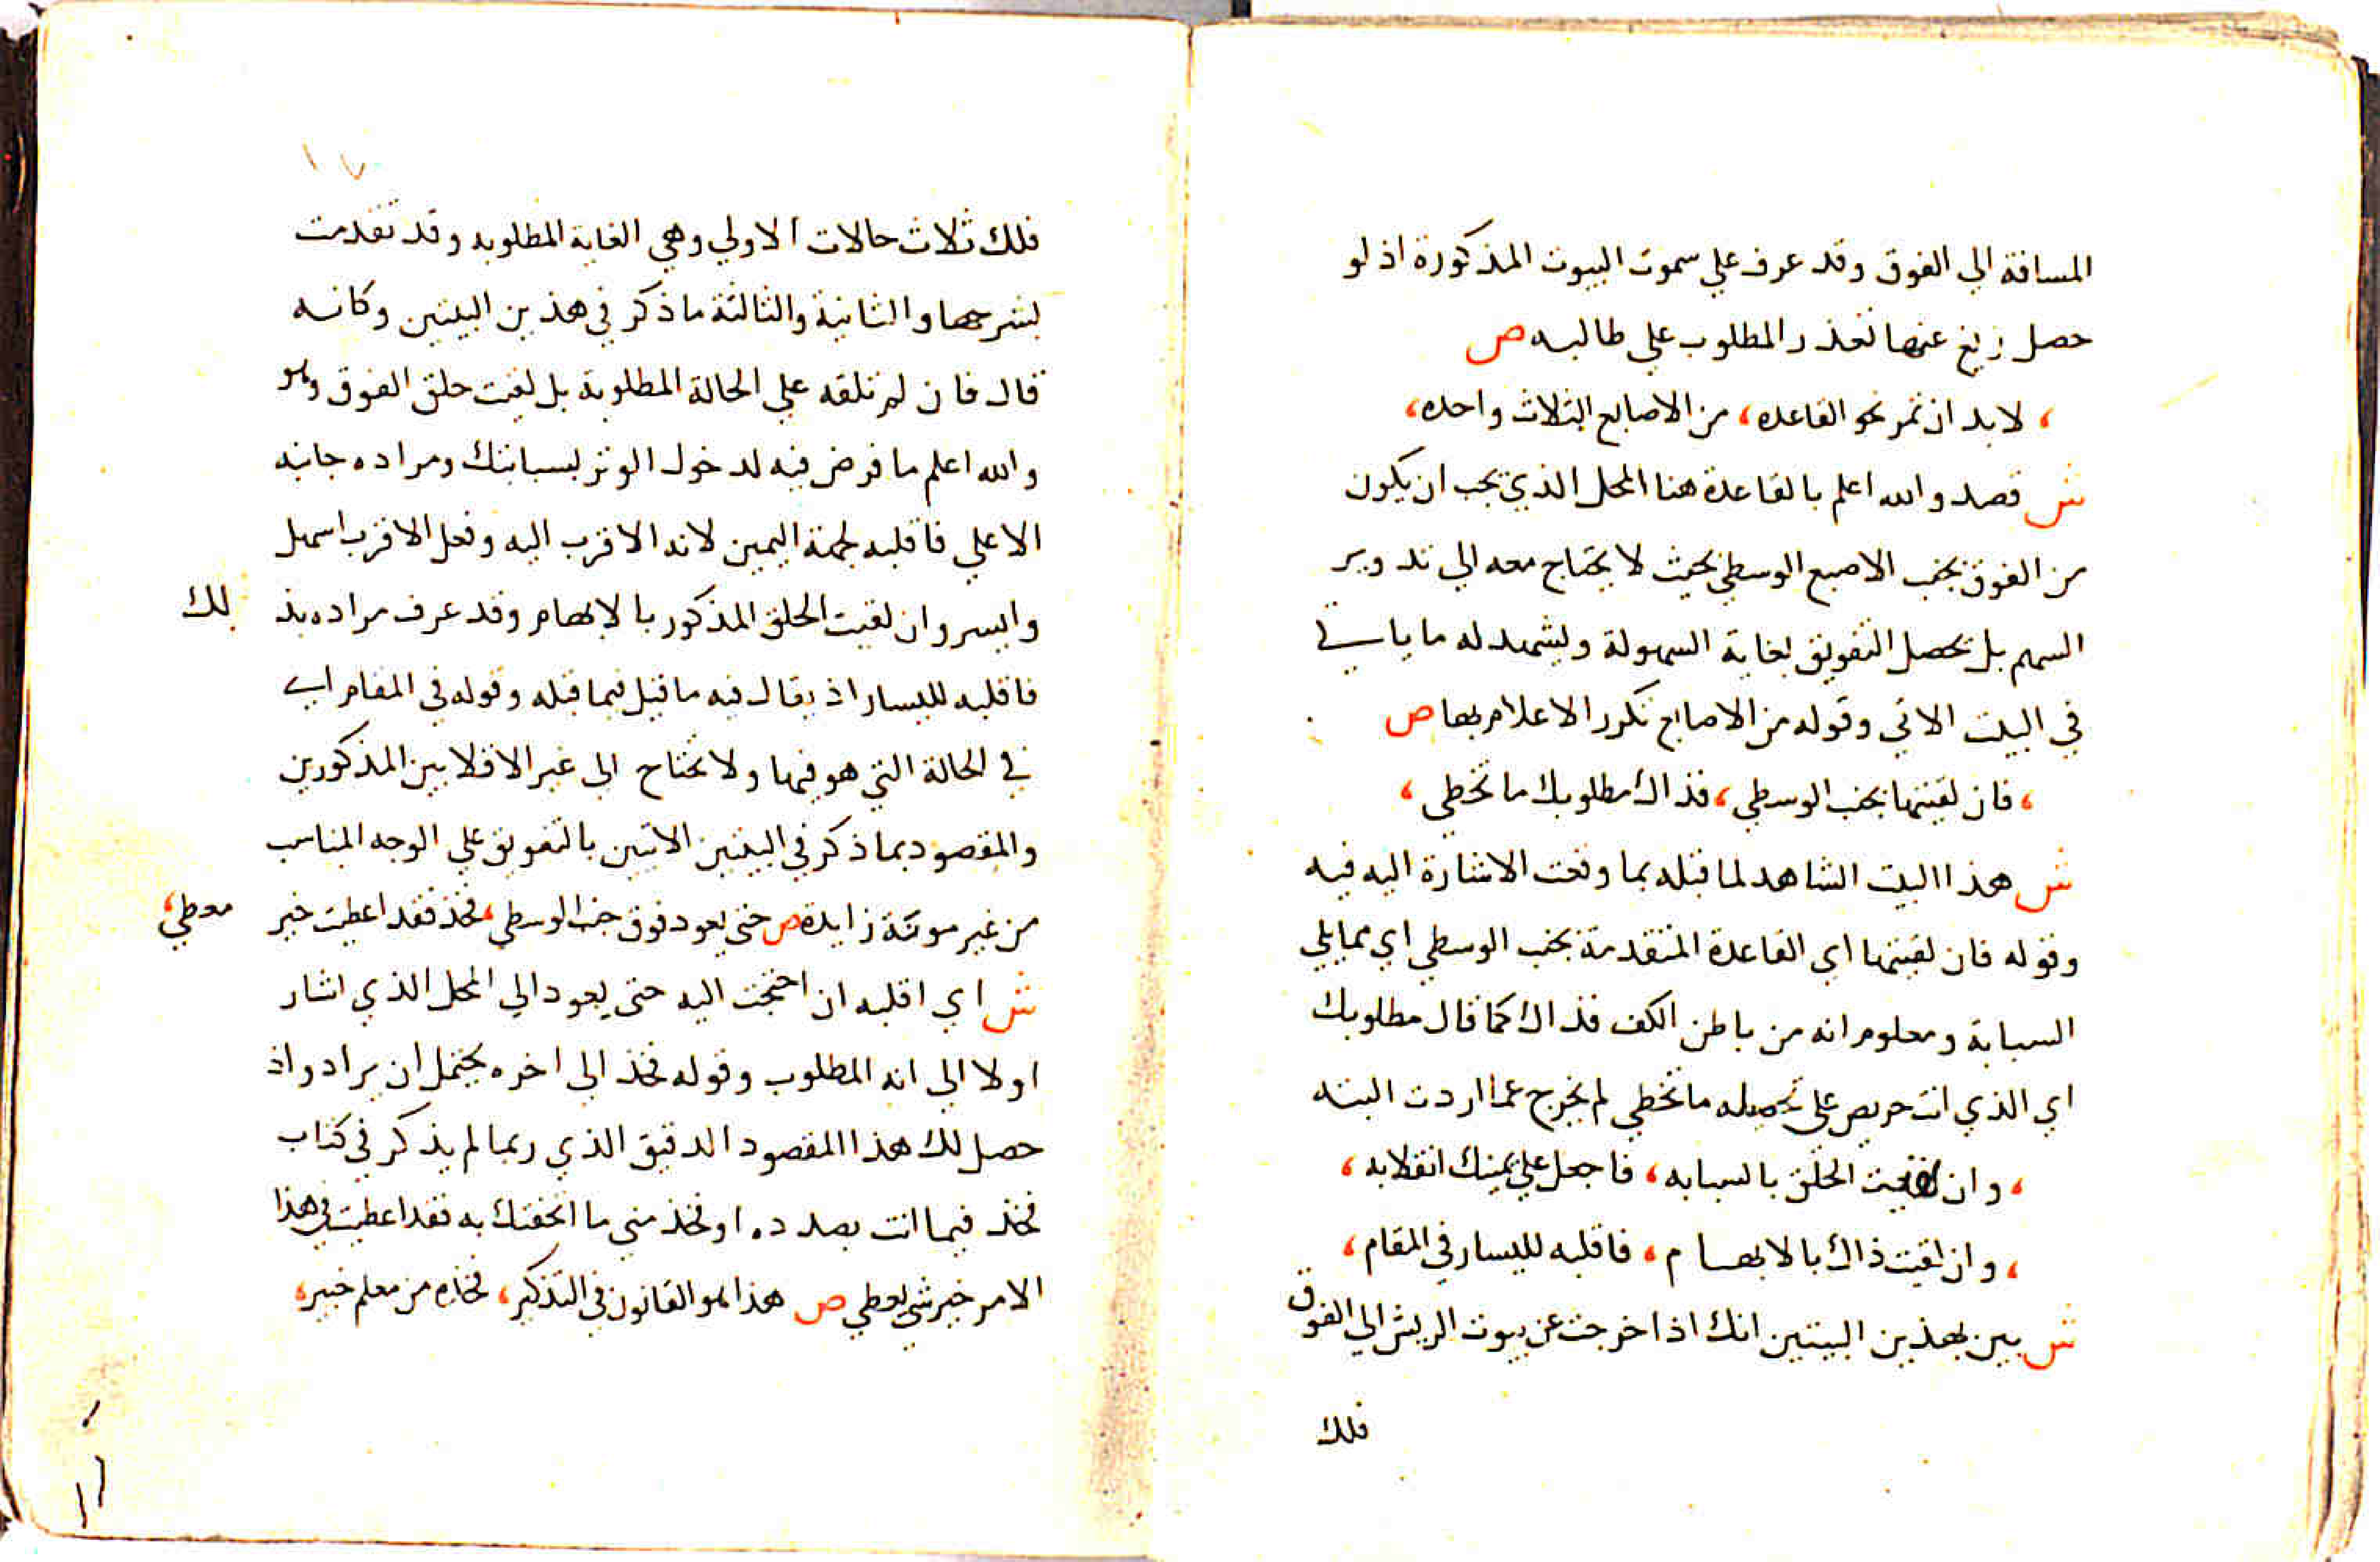 المسافة الي الفوق وقد عرف علي سموت البيوت المذكورة اذ لو
حصل زيغ عنها تعذر المطلوب علي طالبه ص
، لابد ان تمر نحو القاعده، من الاصابع الثلاث واحده،
ش قصد والله اعلم بالقاعدة هنا المحل الذي يجب ان يكون
من الفوق بجنب الاصبع الوسطي بحيث لا يحتاج معه الي تدوير
السهم بل يحصل التفويق بغاية السهولة ويشهد له ما ياتي
في البيت الاتي وقوله من الاصابع تكرر الاعلام بها ص
، فان لقيتها بجنب الوسطي، فذاك مطلوبك ما تخطي،
ش هذا البيت الشاهد لما قبله بما وقعت الاشارة اليه فيه
وقوله فان لقيتها اي القاعدة المتقدمة بجنب الوسطي اي مما يلي
السبابة ومعلوم انه من باطن الكف فذاك كما قال مطلوبك
اي الذي انت حريص علي تحصيله ما تخطي لم يخرج عما اردت البته
، وان لقيت الحلق بالسبابه، فاجعل علي يمينك انقلابه،
، وان لقيت ذاك بالابهام، فاقلبه لليسار في المقام،
ش بين بهذين البيتين انك اذا خرجت عن بيوت الريش الي الفوق
فلك
١٧
فلك ثلاث حالات الاولي وهي الغاية المطلوبه وقد تقدمت
بشرحها والثانية والثالثة ما ذكر في هذين البيتين وكانه
قال فان لم تلقه علي الحالة المطلوبة بل لقيت حلق الفوق وهو
والله اعلم ما فرض فيه لدخول الوتر بسبابتك ومراده جانبه
الاعلي فاقلبه لجهة اليمين لانه الاقرب اليه وفعل الاقرب اسهل
وايسر وان لقيت الحلق المذكور بالابهام وقد عرف مراده بذ لك
فاقلبه لليسار اذ يقال فيه ما قيل فيما قبله وقوله في المقام اي
في الحالة التي هو فيها ولا تحتاج الي غير الاقلابين المذكورين
والمقصود بما ذكر في البيتين الاتيين بالتفويق علي الوجه المناسب
من غير موئنة زايدة ص حتي يعود فوق جنب الوسطي، فخذ فقد اعطيت خير معطي،
ش اي اقلبه ان احتجت اليه حتي يعود الي المحل الذي اشار
اولا الي انه المطلوب وقوله فخذ الي اخره يحتمل ان يراد واذ
حصل لك هذا المقصود الدقيق الذي ربما لم يذكر في كتاب
فخذ فيما انت بصدده او فخذ مني ما اتحفتك به فقد اعطيت في هذا
الامر خير شي يعطي ص هذا هو القانون في التذكير، فخذه من معلم خبير،